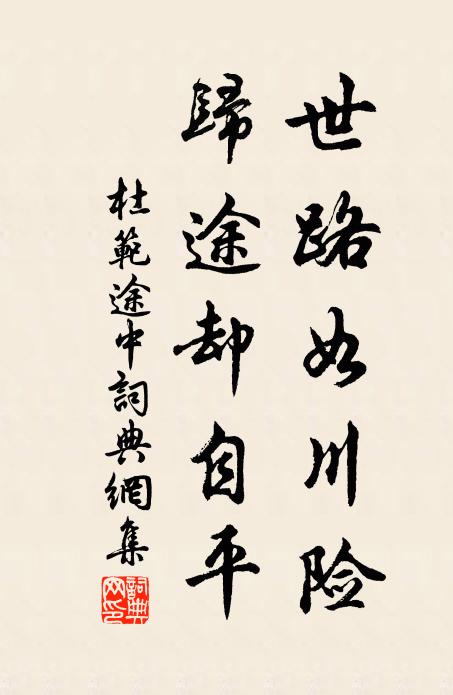 世路如川险
歸途却自平
杜範途中詞典網集
詞典網印